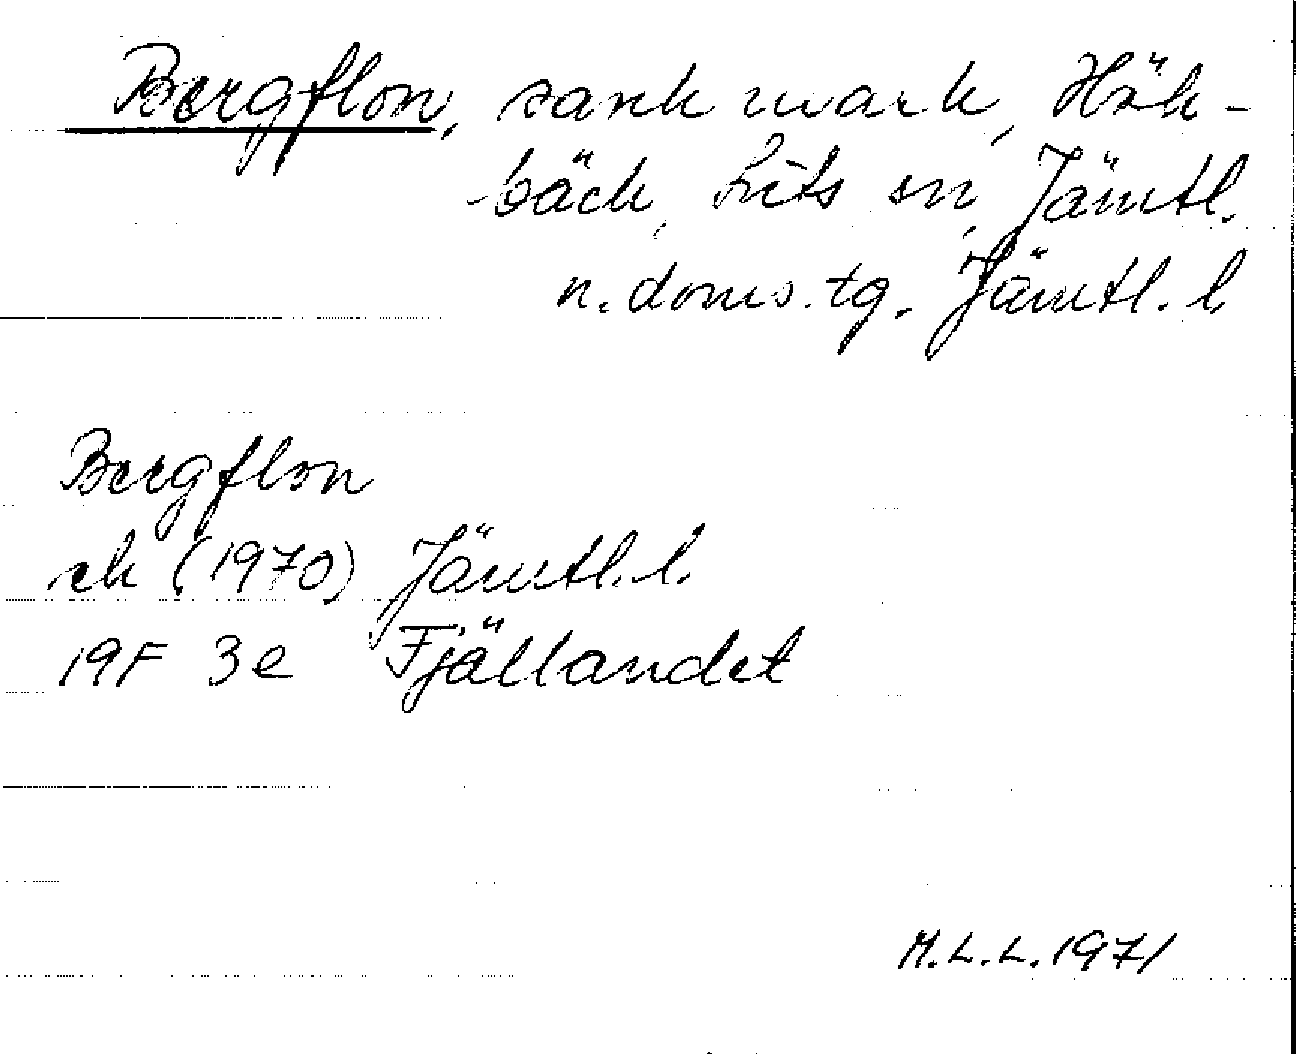 Bergflon, sank mark, Hök-
bäck, Lits sn, Jämtl.
n. doms. tg. Jämtl. l.
Bergflon
ek (1970) Jämtl. l.
19F 3e Fjällandet
M.L.L. 1971